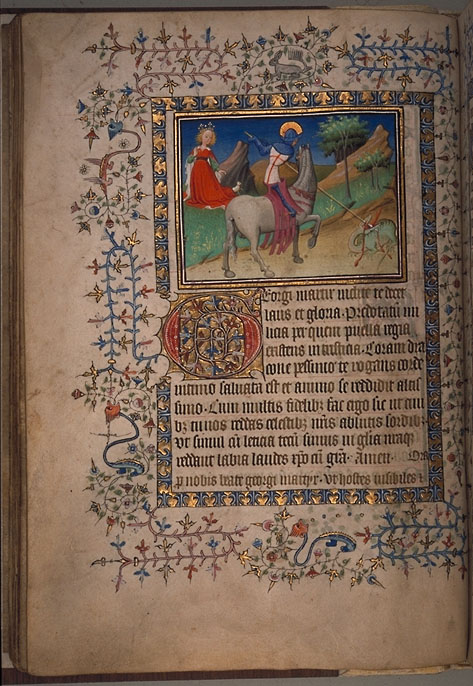 Georgi martir inclite te decet
laus et gloria. Predotatū mi
licia per quem puella regia
existens in tristicia. Coram dra
cone pessimo te rogans corde
intimo saluata est et animo se reddidit altis
simo. Cum multis fidelibꝫ fac ergo sic ut ciui
bꝫ nos reddas celestibꝫ nr̄is ablutis sordibꝫ
Vt simul cū leticia tecū simus in gl̄ia nr̄aqꝫ
reddant labia laudes xp̄o cū grā. Amen. Or̄
p nobis beate georgi martyr. Vt hostes uisibiles ⁊